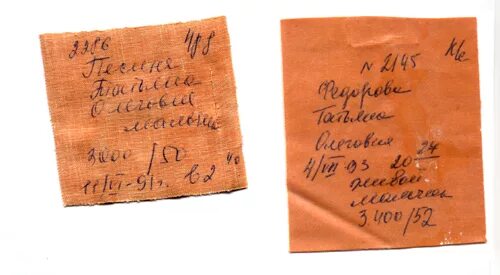 2286
Песиня
Татьяна
Олеговна
мальчик
3000/50
11/VI-91г. 2 40
N 2145
Федорова
Татьяна
Олеговна
4/VIII-93 20 24
живой
мальчик
3.400/52